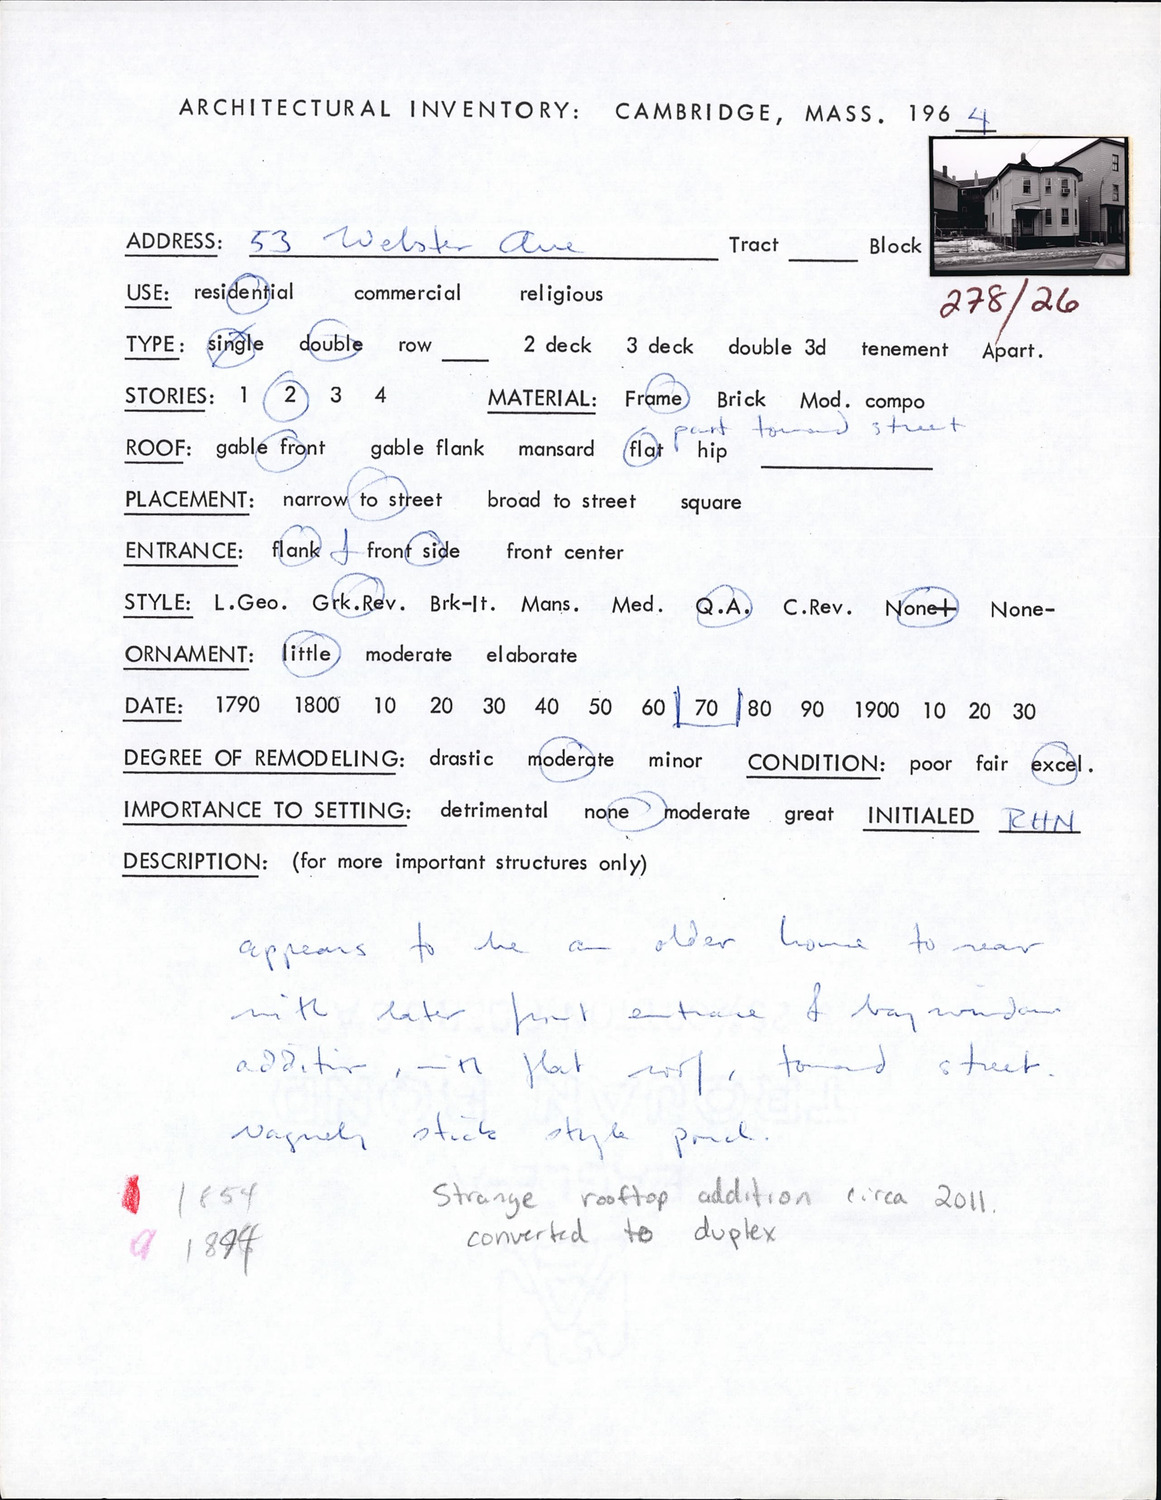 ARCHITECTURAL INVENTORY: CAMBRIDGE, MASS. 1964
ADDRESS: 53 Webster Ave Tract ____ Block
278/26
USE: residential commercial religious
TYPE: single double row ____ 2 deck 3 deck double 3d tenement Apart.
STORIES: 1 2 3 4 MATERIAL: Frame Brick Mod. compo
part toward street
ROOF: gable front gable flank mansard flat hip ____
PLACEMENT: narrow to street broad to street square
ENTRANCE: flank & front side front center
STYLE: L.Geo. Grk.Rev. Brk-It. Mans. Med. Q.A. C.Rev. None+ None-
ORNAMENT: little moderate elaborate
DATE: 1790 1800 10 20 30 40 50 60 70 80 90 1900 10 20 30
DEGREE OF REMODELING: drastic moderate minor CONDITION: poor fair excel.
IMPORTANCE TO SETTING: detrimental none moderate great INITIALED RHN
DESCRIPTION: (for more important structures only)
appears to be an older home to rear
with later front entrance & bay window
addition, with flat roof, toward street.
Vaguely stick style porch.
1854 Strange rooftop addition circa 2011.
converted to duplex